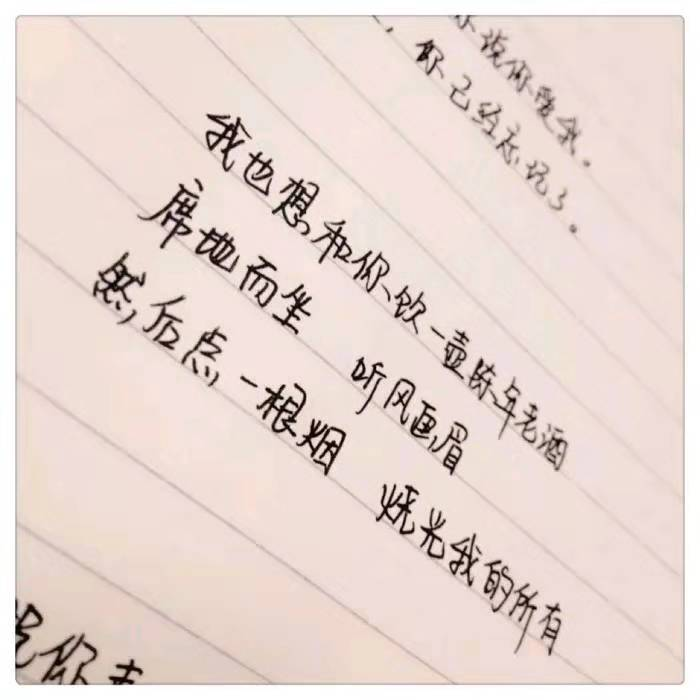 你说你爱我。
，你已经忘记了。
我也想和你饮一壶陈年老酒
席地而坐 听风画眉
然后点一根烟 烧光我的所有
说你走